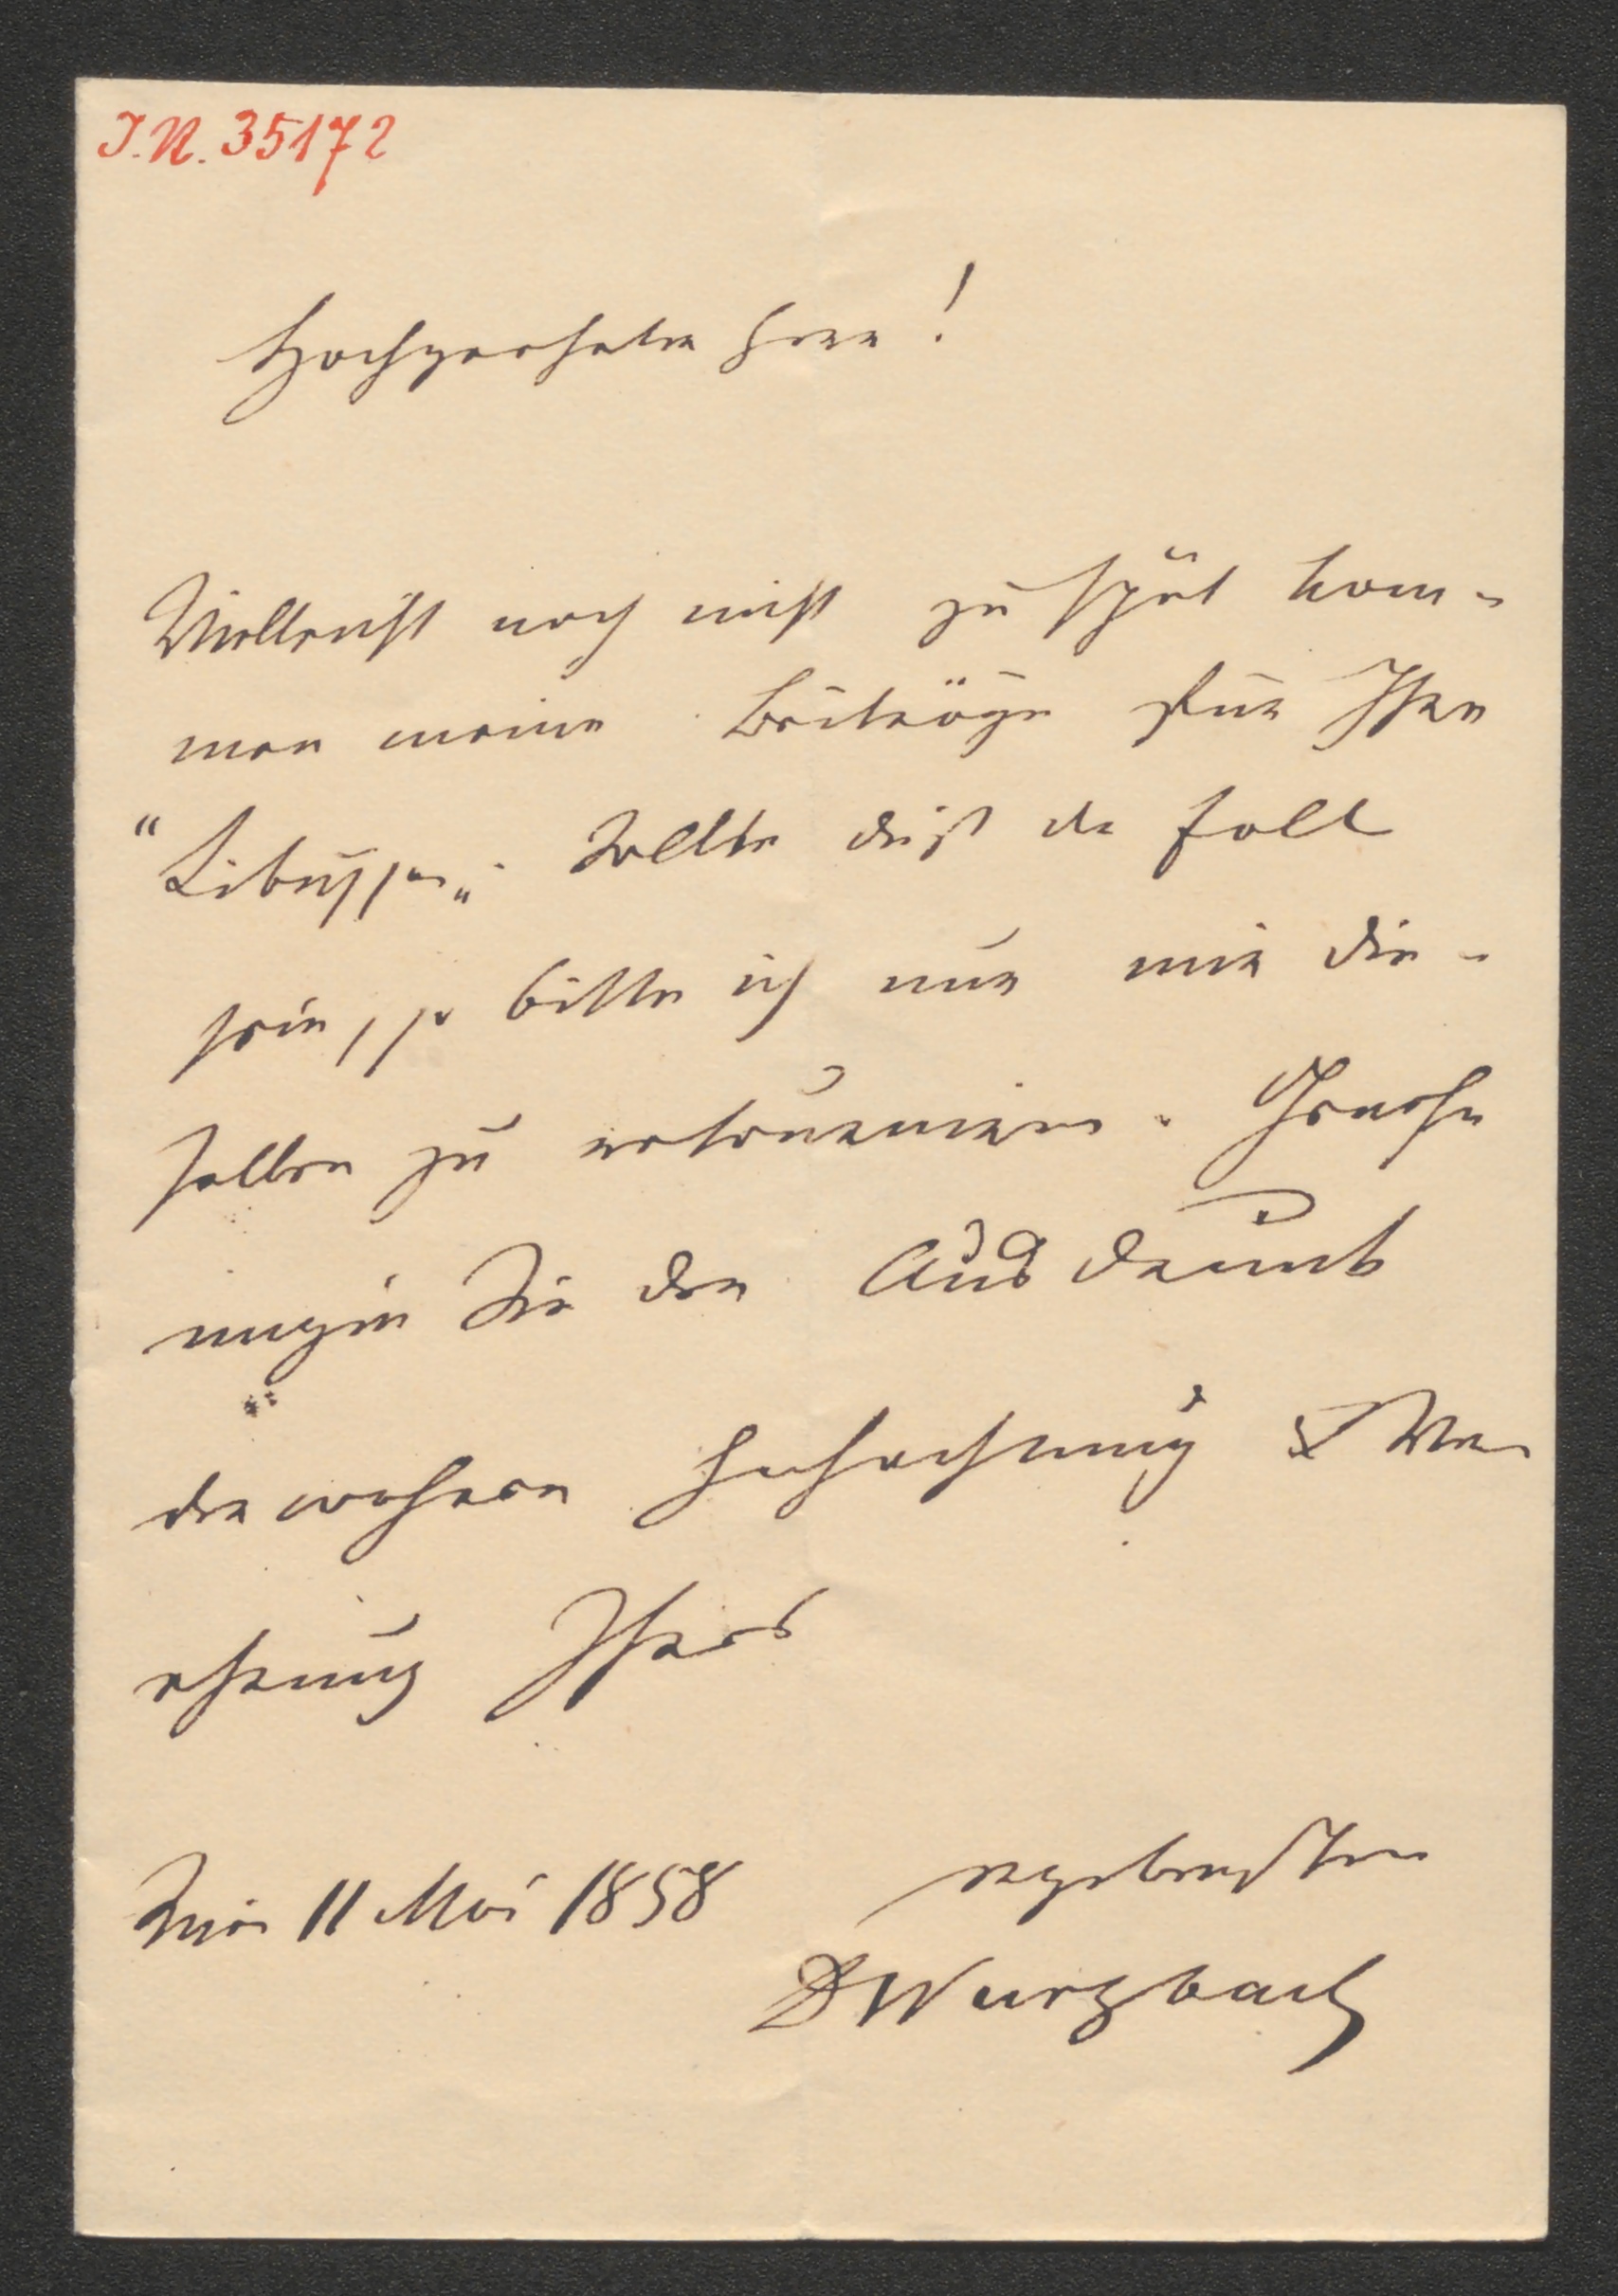 J.N. 35172
Hochgeehrter Herr!
Vielleicht noch nicht zu spät kom-
men meine Beiträge für Ihre
"Libussa„. Sollte dieß der Fall
sein, so bitte ich nur mir die-
selben zu retourniren. Geneh
migen Sie den Ausdruck
der wahren Hochachtung & Ver
ehrung Ihres
Wien 11 Mai 1858 ergebensten
DWurzbach